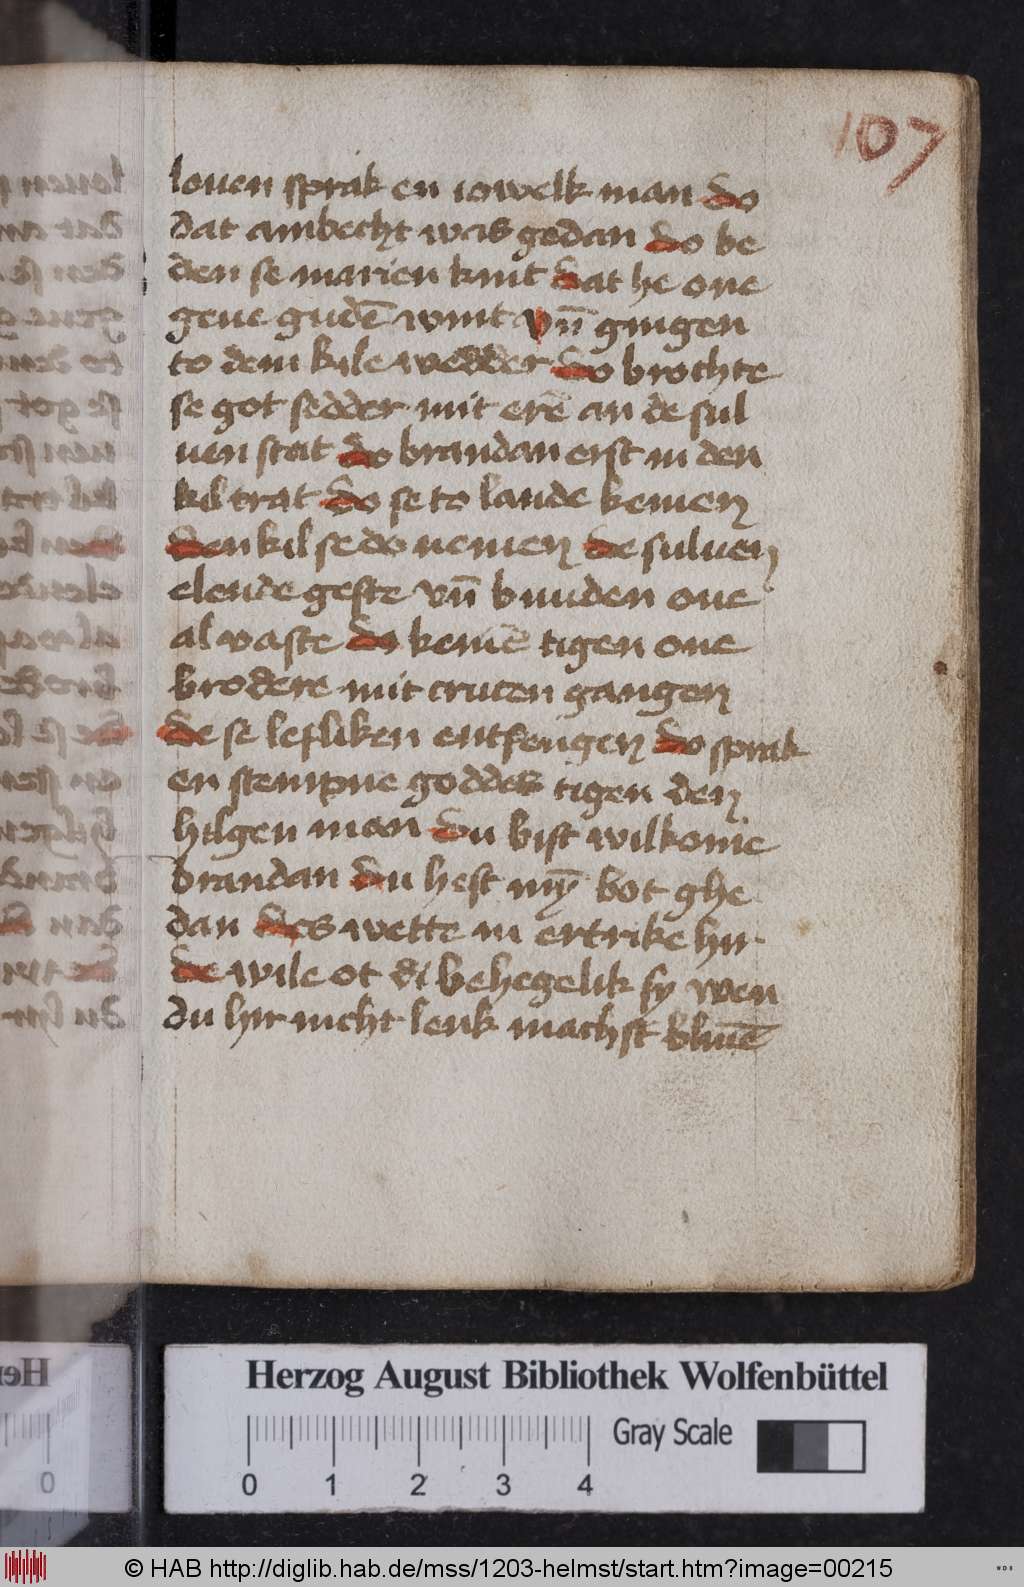 107
louen sprak en iowelk man do
dat ambecht was gedan do be
den se marien kint dat he one
geue gudē wint vn̄ gingen
to dem kile wedder do brochte
se got sedder mit erē an de sul
uen stat do brandan erst in den
kil trat do se to lande kemen
den kil se do nemen de suluen
elende geste vn̄ bunden one
al vaste do kemē tigen one
brodere mit crucen gangen
de se lefliken entfengen do sprak
en stempne goddes tigen den
hilgen man du bist wilkome
brandan du hest mȳ bot ghe
dan des wette in ertrike hir
de wile ot di behegelik sy wen
du hir nicht lenk machst bliuē
Herzog August Bibliothek Wolfenbüttel
0 1 2 3 4
Gray Scale
© HAB http://diglib.hab.de/mss/1203-helmst/start.htm?image=00215